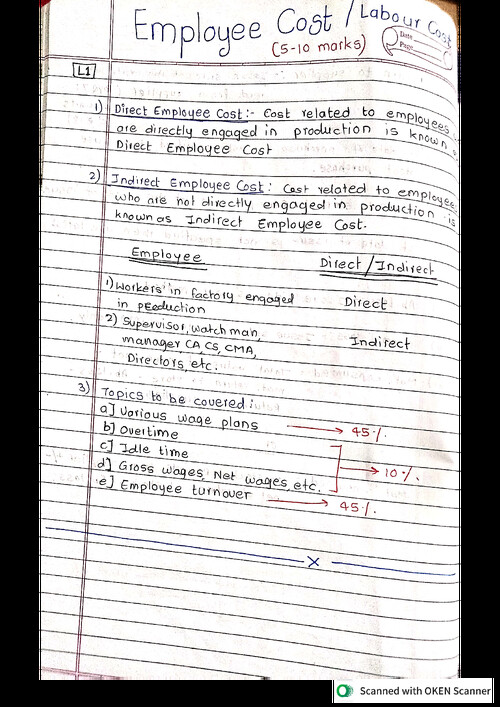 Employee Cost / Labour Cost
(5-10 marks)
Date
Page
L1
1) Direct Employee Cost:- Cost related to employees
are directly engaged in production is known
Direct Employee Cost
2) Indirect Employee Cost: Cost related to employee
who are not directly engaged in production is
known as Indirect Employee Cost.
Employee Direct/Indirect
1) Workers in factory engaged Direct
in production
2) Supervisor, watch man, Indirect
manager CA, CS, CMA,
Directors, etc.
3) Topics to be covered:
a] Various wage plans → 45%.
b] Overtime
c] Idle time → 10%.
d] Gross wages, Net wages, etc.
e] Employee turnover → 45%.
x
Scanned with OKEN Scanner